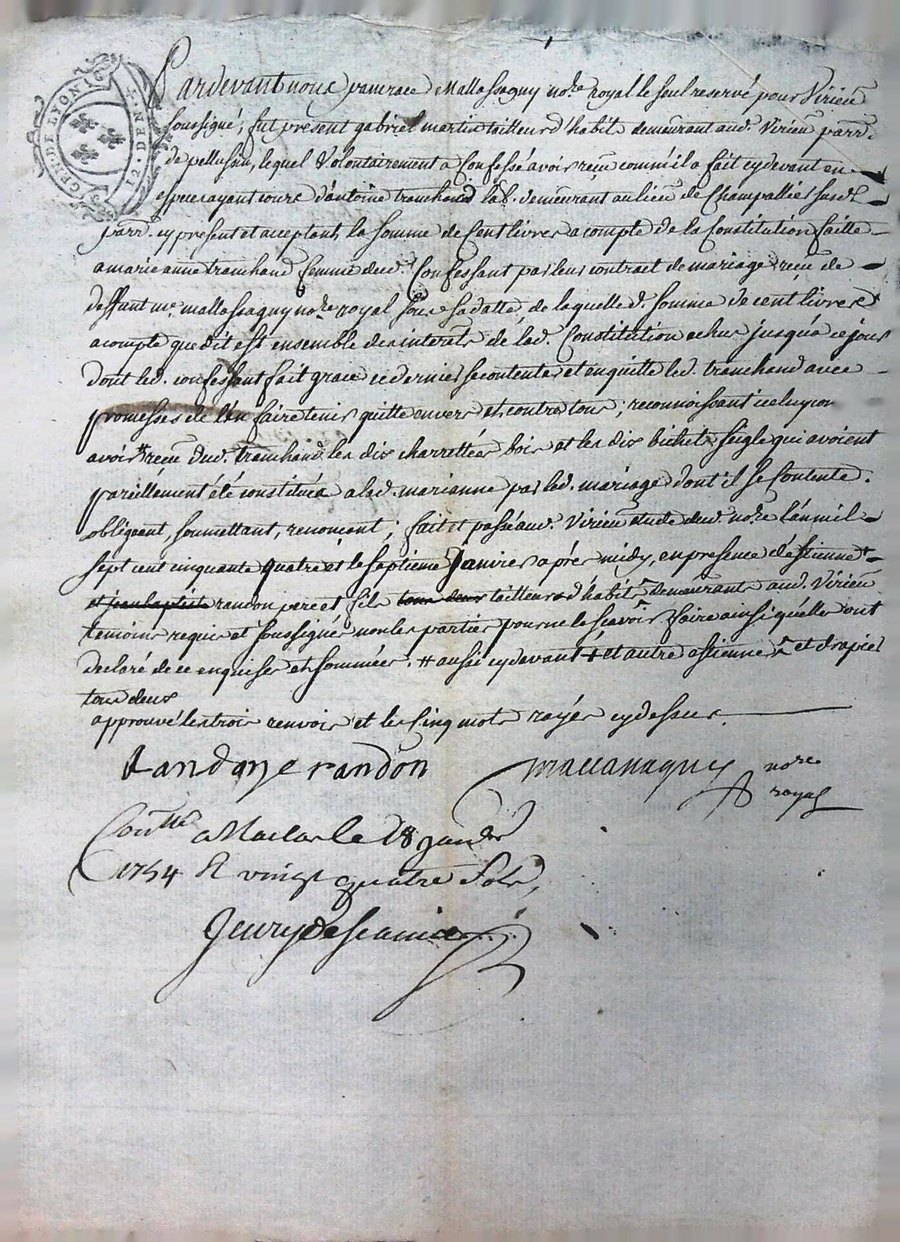 GEN. DE LYON
12 DEN.
Pardevant nous pancrace Mallassagny no.re royal le seul reservé pour Virieu
soussigné, fut present gabriel martin tailleur d'habit demeurant aud. Virieu parr.
de pellusin, lequel Volontairement a Confessé avoir reçu comm'il a fait cydevant en
espece ayant cours d'antoine tranchand lab. demeurant au lieu de Champallier susd.
parr. cy present et aceptant, la somme de Cent livres a compte de la Constitution faitte
a marie anne tranchand femme dud. Confessant par leur contract de mariage reçu de
deffunt m.e mallassagny no.re royal sous sa datte, de laquelle d. somme de cent livres
a compte que dit est ensemble des interets de lad. Constitution echus jusqu'a ce jour
dont led. confessant fait grace ce dernier se contente et en quitte led. tranchand avec
promesses de l'en faire tenir quitte envers et contre tous ; reconnoissant
avoir reçu dud. tranchand les dix charrettées bois et les dix bichets seigle qui avoient
pareillement été constitués a lad. marianne par led. mariage dont il se Contente.
obligeant, soumettant, renoncant ; fait et passé aud. Virieu etude dud. no.re l'an mil
sept cent cinquante quatre et le septieme Janvier après midy, en presence d'estienne
et jean baptiste randon pere et fils tous deux tailleurs d'habit demeurants aud. Virieu
temoins requis et soussignés non les parties pour ne le scavoir faire ainsi qu'elles ont
declaré de ce enquises et sommées. # aussi cydevant + et autre estienne et drapier
tous deux
approuvé les trois renvois et les Cinq mots rayés cydessus.
randon
mallassagny no.re
royal
Con.llé a Maclas le 18 janv.er
1754 R vingt quatre sols,